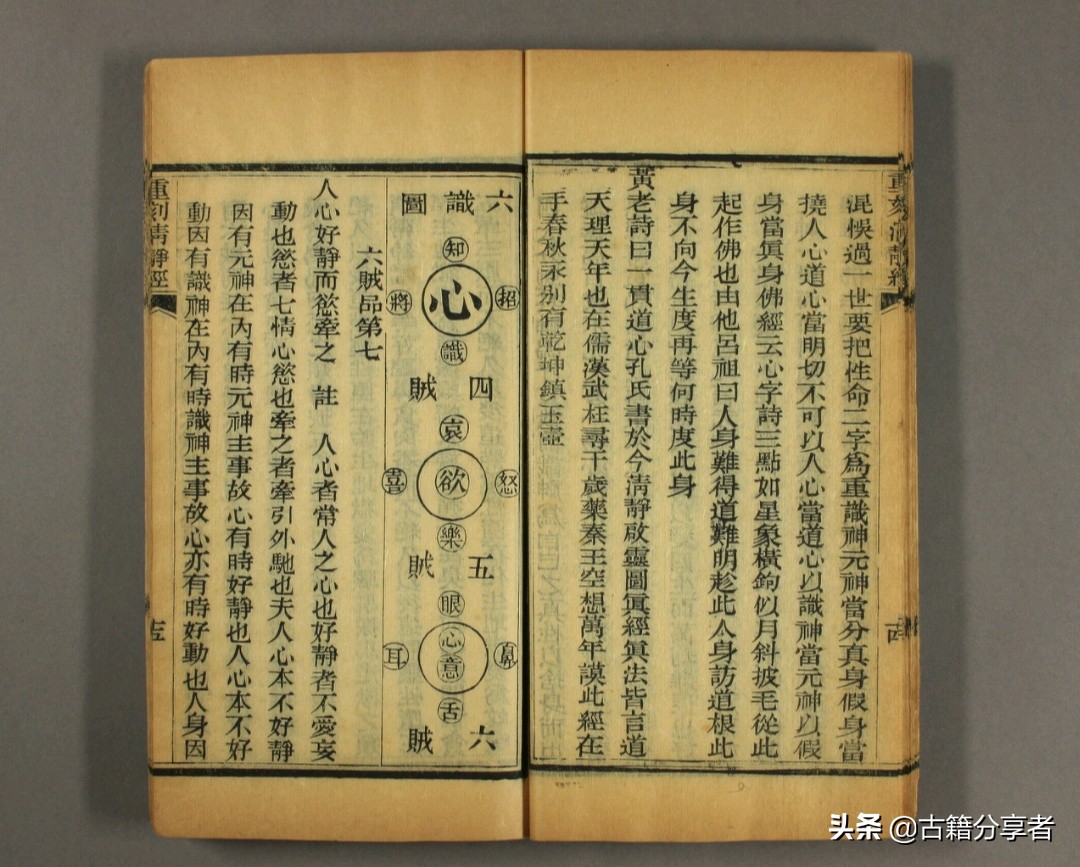 混悞過一世要把性命二字為重識神元神當分真身假身當
撓人心道心當明切不可以人心當道心以識神當元神以假
身當真身佛經云心字詩三點如星象橫鉤似月斜披毛從此
起作佛也由他呂祖曰人身難得道難明趁此人身訪道根此
身不向今生度再等何時度此身
黃老詩曰一貫道心孔氏書於今清靜啟靈圖真經真法皆言道
天理天年也在儒漢武枉尋千歲藥秦王空想萬年謨此經在
手春秋永别有乾坤鎮玉壺
六識圖
知
招
心
將
識
四賊
哀
怒
欲
喜
樂
五賊
眼
鼻
心意
耳
舌
六賊
六賊品第七
人心好靜而慾牽之 註 人心者常人之心也好靜者不愛妄
動也慾者七情心慾也牽之者牽引外馳也夫人心本不好靜
因有元神在內有時元神主事故心有時好靜也人心本不好
動因有識神在內有時識神主事故心亦有時好動也人身因
重刻清靜經
十五
頭条 @古籍分享者